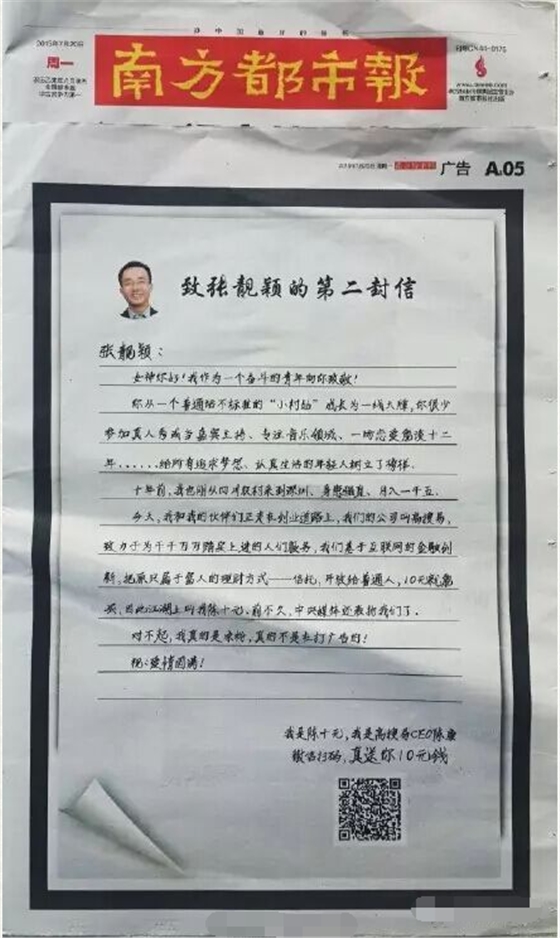 2015年7月20日
周一
南方都市報
广告 A05
致张靓颖的第二封信
张靓颖：
女神你好！我作为一个奋斗的青年向你致敬！
你从一个普通话不标准的“小村姑”成长为一线大牌，你很少
参加真人秀或当嘉宾主持、专注音乐领域、一场恋爱爱谈十二
年......给所有追求梦想、认真生活的年轻人树立了榜样。
十年前，我也刚从四川农村来到深圳、身无强直、月入一千五。
今天，我和我的伙伴们正走在创业道路上，我们的公司叫高搜易，
致力于为千千万万踏实上进的人们服务，我们基于互联网的金融创
新，把原只属于富人的理财方式——信托，开放给普通人，10元就能
买，因此江湖上叫我陈十元，前不久，中央媒体还表扬我们了。
对不起，我真的是凉粉，真的不是在打广告的！
祝：爱情圆满！
我是陈十元，我是高搜易CEO陈康
微信扫码，真送你10元钱